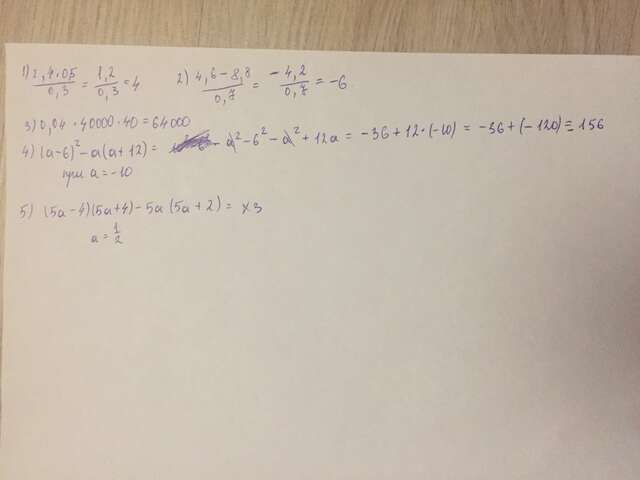 1) 2,4·0,5/0,3 = 1,2/0,3 = 4   2) 4,6-8,8/0,7 = -4,2/0,7 = -6
3) 0,04 · 40000 · 40 = 64000
4) (a-6)² - a(a+12) = - a² - 6² - a² + 12a = -36 + 12 · (-10) = -36 + (-120) = 156
при a = -10
5) (5a-4)(5a+4) - 5a (5a+2) = x3
a = 1/2